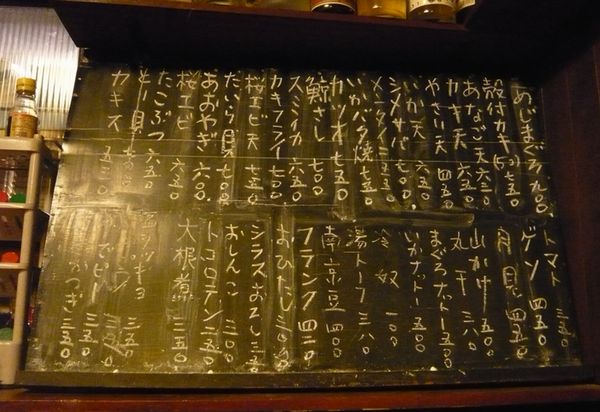 あじまご 九〇〇
殻付カキ 七五〇
あなご天 六三〇
カキ天 六五〇
やさい天 四五〇
いか天 六五〇
シメサバ 七〇〇
メンタイコ 五五〇
いかバタ焼 七五〇
カツオ 七五〇
鯨さし 七〇〇
スミイカ 六五〇
カキフライ 七〇〇
桜エビ天 七五〇
たいら貝 七〇〇
あおやぎ 六〇〇
桜エビ 六五〇
とり貝 七〇〇
たこぶつ 六五〇
カキス 五五〇
トマト 三五〇
ゲソ 四五〇
月見 四五〇
山かけ 五〇〇
丸干 三八〇
まぐろナットー 五五〇
いかナットー 五五〇
冷奴 一〇〇
湯トーフ 三八〇
南京豆 四〇〇
フランク 四三〇
おひたし 三〇〇
シラスおろし 三五〇
おしんこ 三〇〇
トコロテン 三五〇
大根煮 三五〇
三五〇
三五〇
三五〇